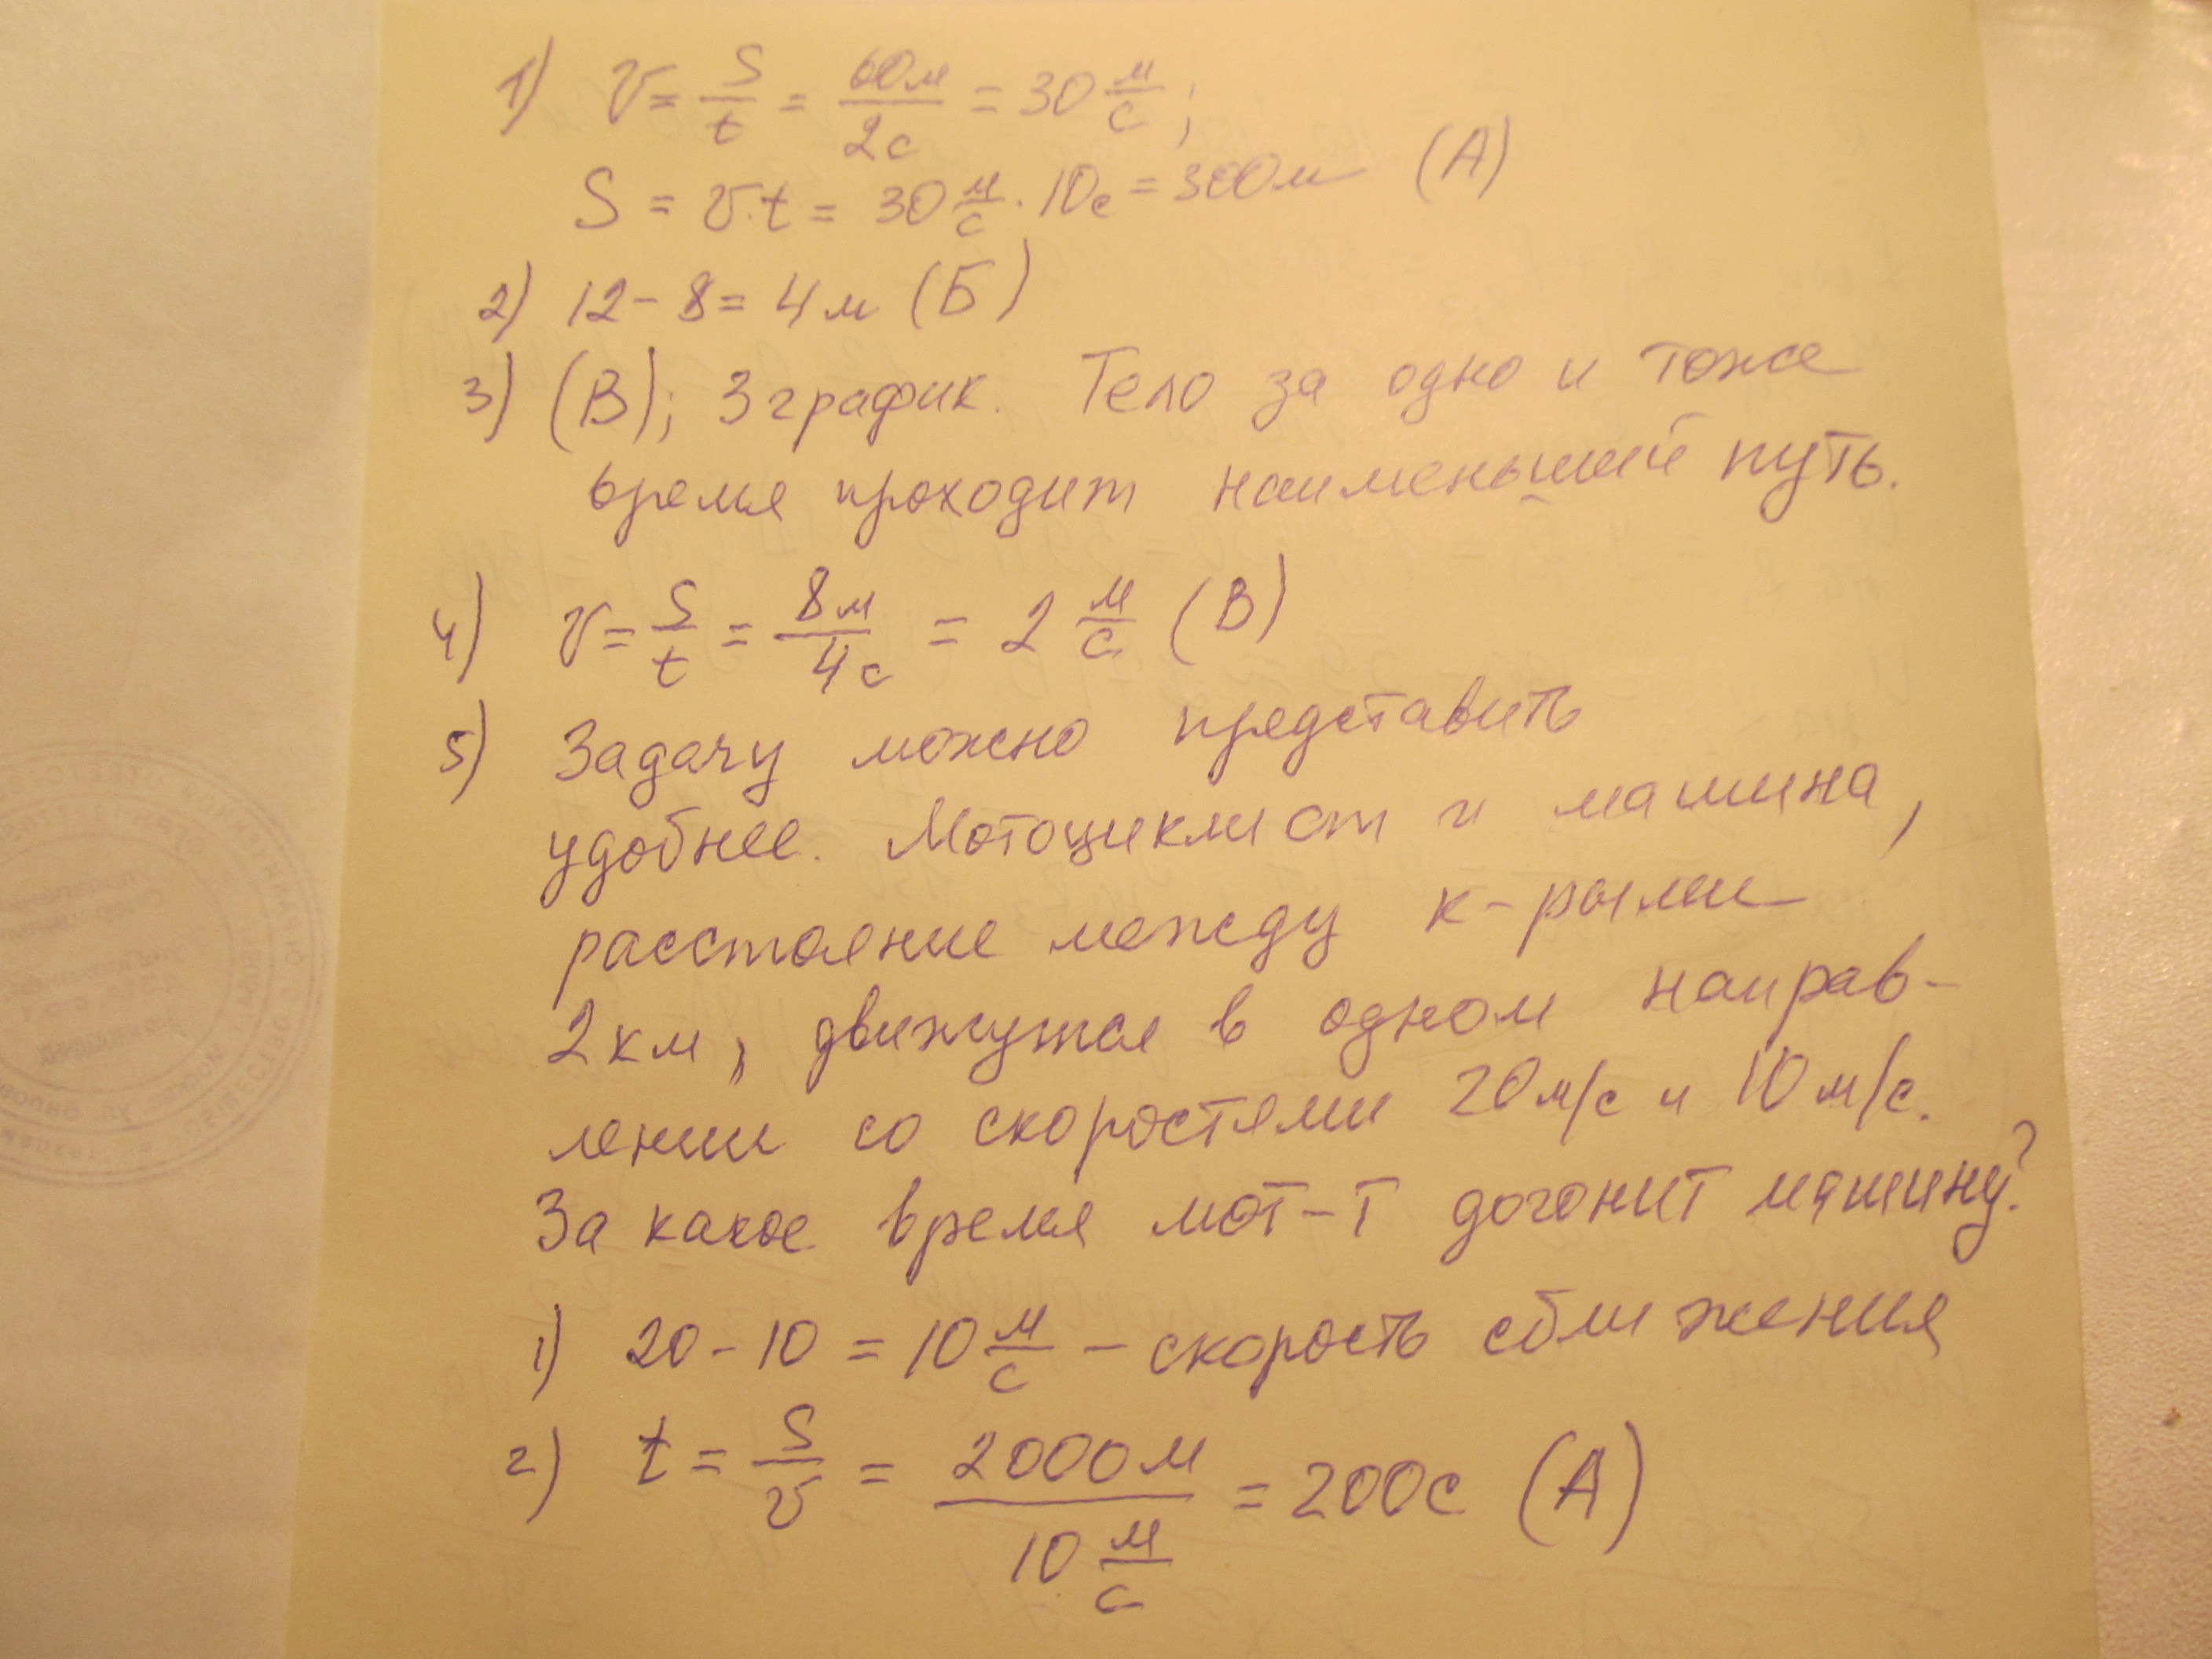 1) v = S/t = 60м/2с = 30 м/с;
S = v·t = 30 м/с · 10с = 300м (А)
2) 12 - 8 = 4 м (Б)
3) (В); 3 график. Тело за одно и тоже
время проходит наименьший путь.
4) v = S/t = 8м/4с = 2 м/с (В)
5) Задачу можно представить
удобнее. Мотоциклист и машина,
расстояние между к-рыми
2 км, движутся в одном направ-
лении со скоростями 20 м/с и 10 м/с.
За какое время мот-т догонит машину?
1) 20 - 10 = 10 м/с - скорость сближения
2) t = S/v = 2000 м/10 м/с = 200с (А)